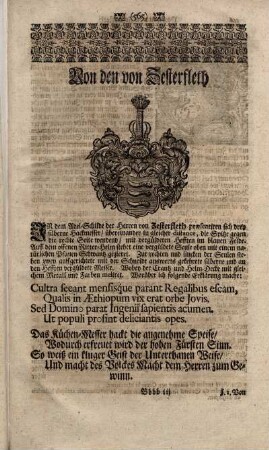 (565)
Von den von Zesterfleth
IN dem Adel-Schilde der Herren von Zesterfleth præsentiren sich drey
silberne Hackmesser / übereinander in gleicher distance, die Spitze gegen
die rechte Seite wendend / mit vergüldeten Hefften im blauen Felde.
Auff dem offenen Ritter-Helm stehet eine vergüldete Seule oben mit einem na-
türlichen Pfauen Schwantz gezieret. Zur rechten und lincken der Seulen stehen
zwey auffgerichtete mit der Schneide auswerts gekehrete silberne und an
den Hefften vergüldete Messer. Wobey der Crantz und Helm-Decke mit glei-
chem Metall und Farben melirt. Worüber ich folgende Erklärung mache:
Cultra secant mensisque parant Regalibus escam,
Qualis in Æthiopum vix erat orbe Jovis.
Sed Domino parat Ingenii sapientis acumen.
Ut populi prosint deliciantis opes.
Das Küchen-Messer hackt die angenehme Speise/
Wodurch erfreuet wird der hohen Fürsten Sinn.
So weiß ein kluger Geist der Unterthanen Weise/
Und macht des Volckes Macht dem Herren zum Ge-
winn.
Bbbb iij
§. 1. Von